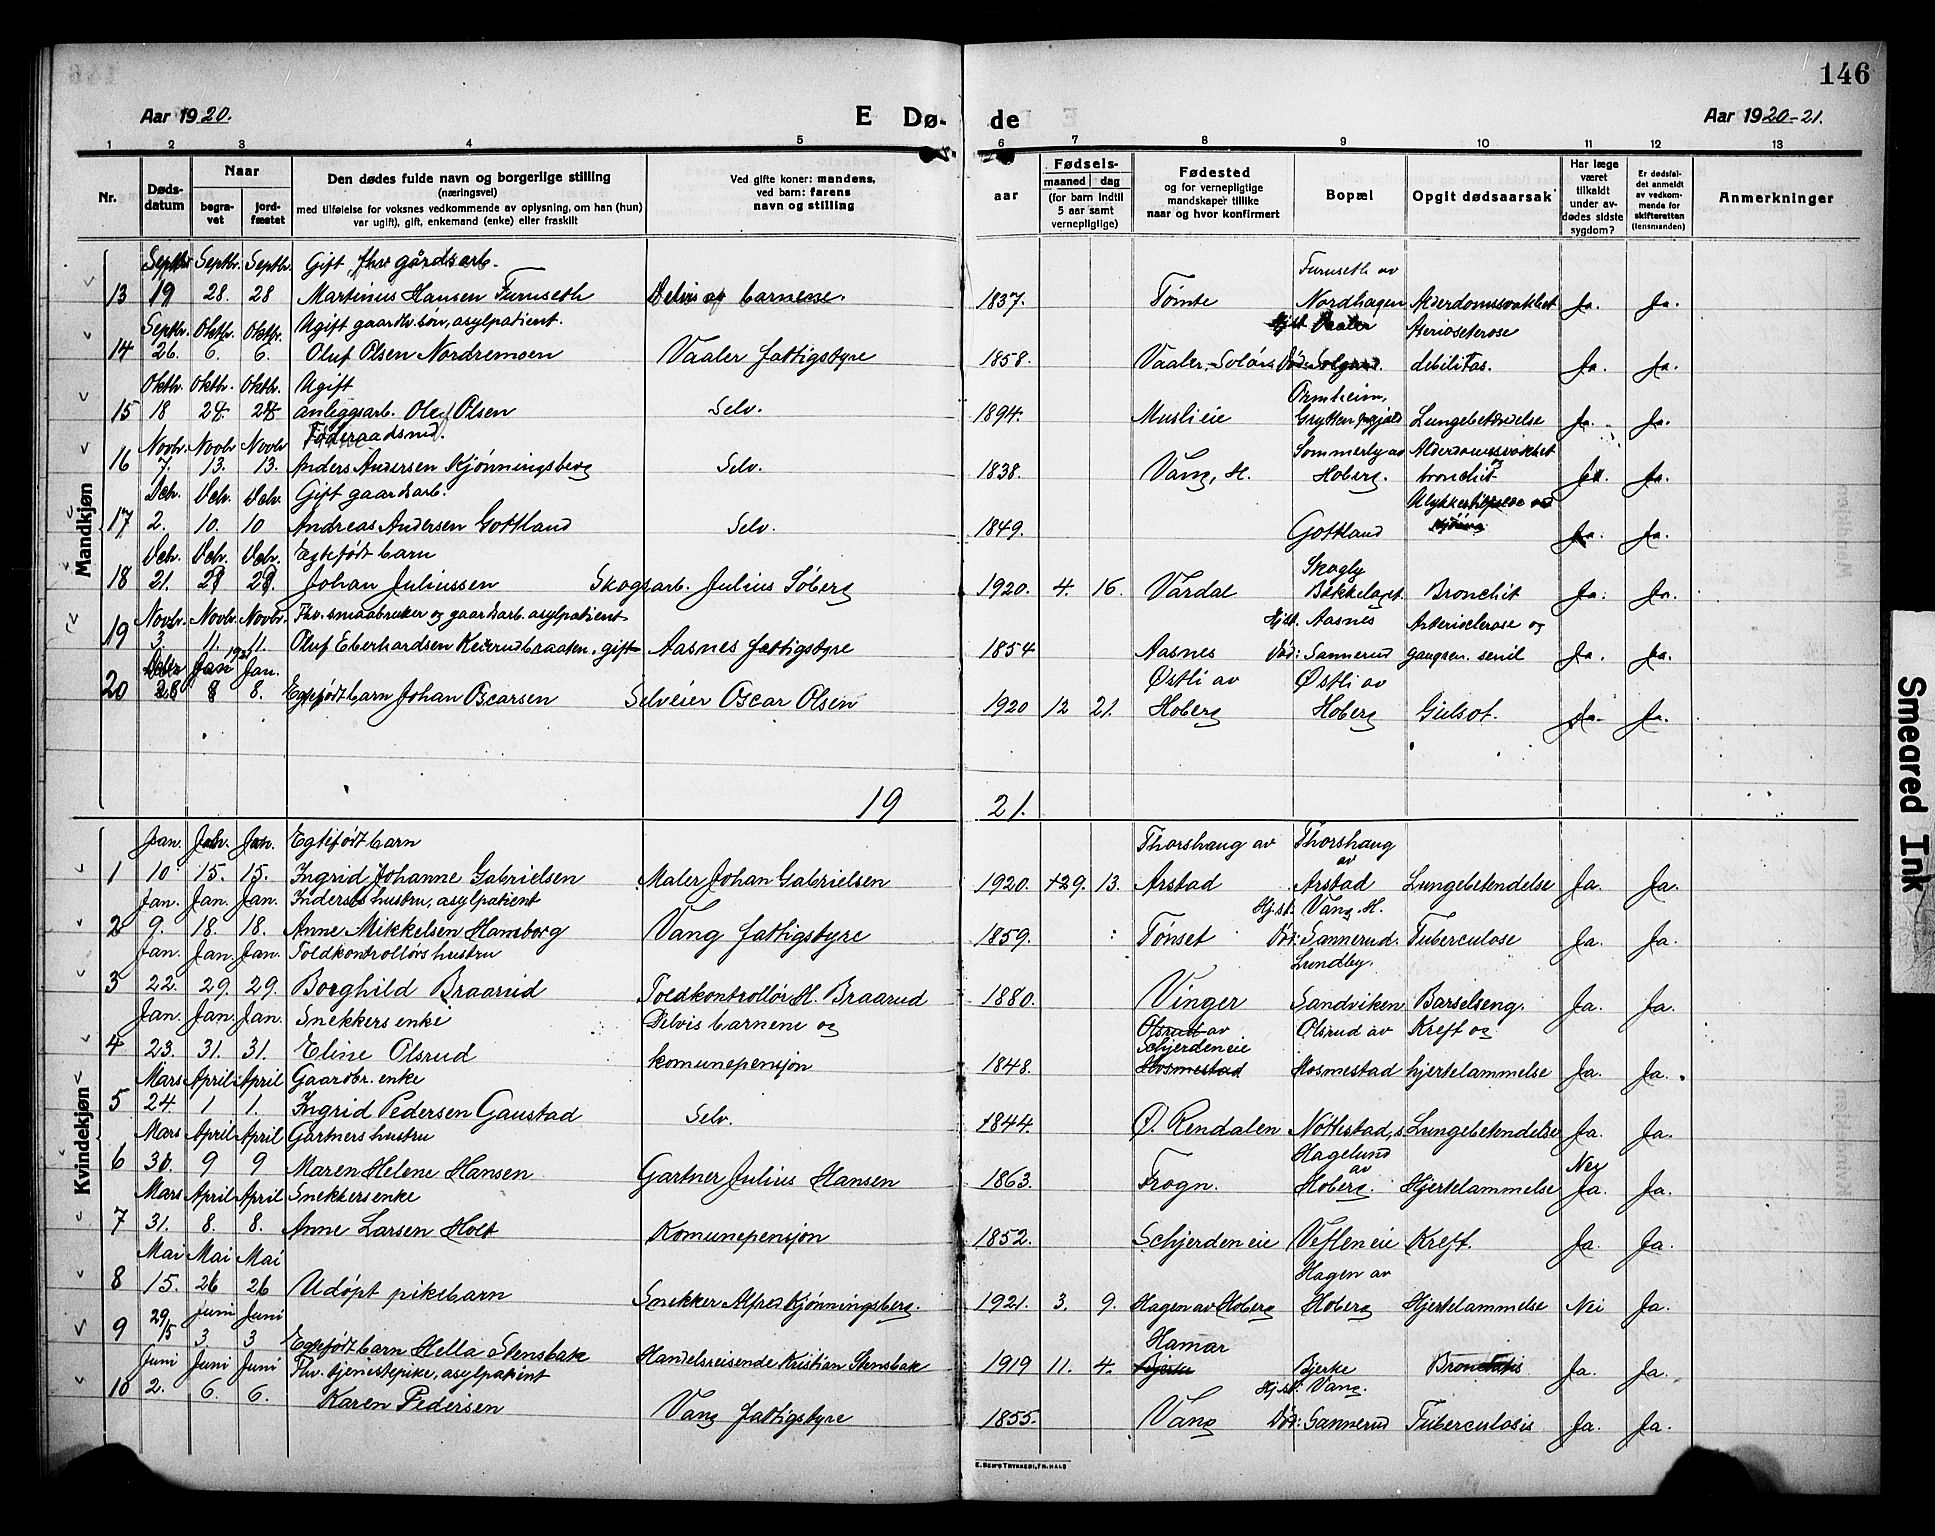 146
Aar 1920.
E Dø-
de
Aar 1920-21.
1 2 3 4 5 6 7 8 9 10 11 12 13
Nr.
Døds-
datum
Naar
begra-
vet
jord-
fæstet
Den dødes fulde navn og borgerlige stilling
(næringsvei)
med tilføielse for voksnes vedkommende av oplysning, om han (hun)
var ugift), gift, enkemand (enke) eller fraskilt
Ved gifte koner: mandens,
ved barn: farens
navn og stilling
aar
Fødsels-
maaned dag
(for barn indtil
5 aar samt
vernepligtige)
Fødested
og for vernepligtige
mandskaper tillike
naar og hvor konfirmert
Bopæl
Opgit dødsaarsak
Har læge
været
tilkaldt
under av-
dødes sidste
sygdom?
Er dødsfal-
det anmeldt
av vedkom-
mende for
skifteretten
(lensmanden)
Anmerkninger
Mandkjøn
Septbr. Septbr. Septbr. Gift, fhv gårdsarb. Furuseth av
13 19 28. 28 Martinius Hansen Furuseth Delvis af barnene. 1837. Tømte Nordhagen Alderdomssvakhet Ja. Ja.
Septbr. Oktbr. Oktbr. Ugift gaardbr.søn, asylpatient. Hjst. Vaaler
14 26. 6. 6. Oluf Olsen Nordremoen Vaaler fattigstyre 1858. Vaaler, Solør debilitas. Ja. Ja.
Oktbr. Oktbr. Oktbr. Ugift Ormheim,
15 18 24. 24 anleggsarb. Ole Olsen Selv. 1894. Muslieie Grytten Lungebetændelse Ja. Ja.
Novbr. Novbr. Novbr Føderaadsmd. Sommerly av Alderdomssvakhet og
16 7. 13. 13. Anders Andersen Kjønningsberg Selv. 1838. Vang, H. Hoberg. bronchit Ja. Ja.
Debr. Debr. Debr. Gift gaardsarb.
17 2. 10. 10 Andreas Andersen Gottland Selv. 1849. Gottland Ja. Ja.
Debr. Debr. Debr. Egtefødt barn Skogly
18 21. 28 28. Johan Juliussen Skogsarb. Julius Søberg 1920. 4. 16. Vardal Bækkelaget. Bronchit Ja. Ja.
Novbr. Novbr. Novbr. Fhv. smaabruker og gaardsarb. asylpatient Hjst. Aasnes Arteriosclerose og
19 3. 11. 11. Oluf Eberhardsen Keierudbraaten. gift Aasnes fattigstyre 1854 Aasnes Død: Sannerud gangren. senil Ja. Ja.
1921
Debr Jan Jan. Østli av Østli av
20 28 8 8. Egtefødt barn Johan Oscarsen Selveier Oscar Olsen 1920 12 21. Hoberg Hoberg Gulsot. Ja. Ja.
19 21.
Kvindekjøn
Jan. Jan. Jan. Egtefødt barn Thorshaug av Thorshaug av
1 10. 15. 15. Ingrid Johanne Gabrielsen Maler Johan Gabrielsen 1920. 13. Arstad Arstad Lungebetendelse Ja. Ja.
Jan. Jan. Jan. Indersts hustru, asylpatient Hj.st. Vang. H.
2 9. 18. 18. Anne Mikkelsen Hamborg Vang fattigstyre 1859. Tønset Død: Sannerud. Tuberculose Ja. Ja.
Jan. Jan. Jan. Toldkontrollørs hustru Lundby.
3 22. 29. 29. Borghild Braarud Toldkontrollør H. Braarud 1880. Vinger Sandviken Barselseng. Ja. Ja.
Jan. Jan. Jan. Snekkers enke Delvis barnene og Olsrud av Schjerdeneie Olsrud av Kreft og
4 23. 31. 31. Eline Olsrud komunepensjon 1848. Hosmestad Hosmestad hjertelammelse Ja. Ja.
Mars April April Gaardbr. enke
5 24. 1 1. Ingrid Pedersen Gaustad Selv. 1844. Ø. Rendalen Nøttestad, s Lungebetendelse Ja. Ja.
Mars April April Gartners hustru Hagelund av Nei
6 30. 9 9 Maren Helene Hansen Gartner Julius Hansen 1863. Frogn. Hoberg. Hjertelammelse Ja. Ja.
Mars April April Snekkers enke
7 31. 8. 8. Anne Larsen Holt Komunepensjon 1852. Schjerdeneie Vefleneie Kreft. Ja. Ja.
Mai Mai Mai Hagen av
8 15. 26 26 Udøpt pikebarn Snekker Alfred Kjønningsberg. 1921. 3. 9. Hagen av Hoberg Hoberg Hjertelammelse Nei Ja.
29/5 Juni Juni Hamar
9 3 3 Egtefødt barn Hella Stensbak Handelsreisende Kristian Stensbak 1919 11. 4. Bjerke Bjerke Ja. Ja.
Juni Juni Juni Fhv. tjenestepike, asylpatient Hj.st. Vang.
10 2. 6. 6. Karen Pedersen Vang fattigstyre 1855. Vang Død: Sannerud Tuberculosis Ja. Ja.
E. SEM'S TRYKKERI, FR.HALD
Smeared Ink